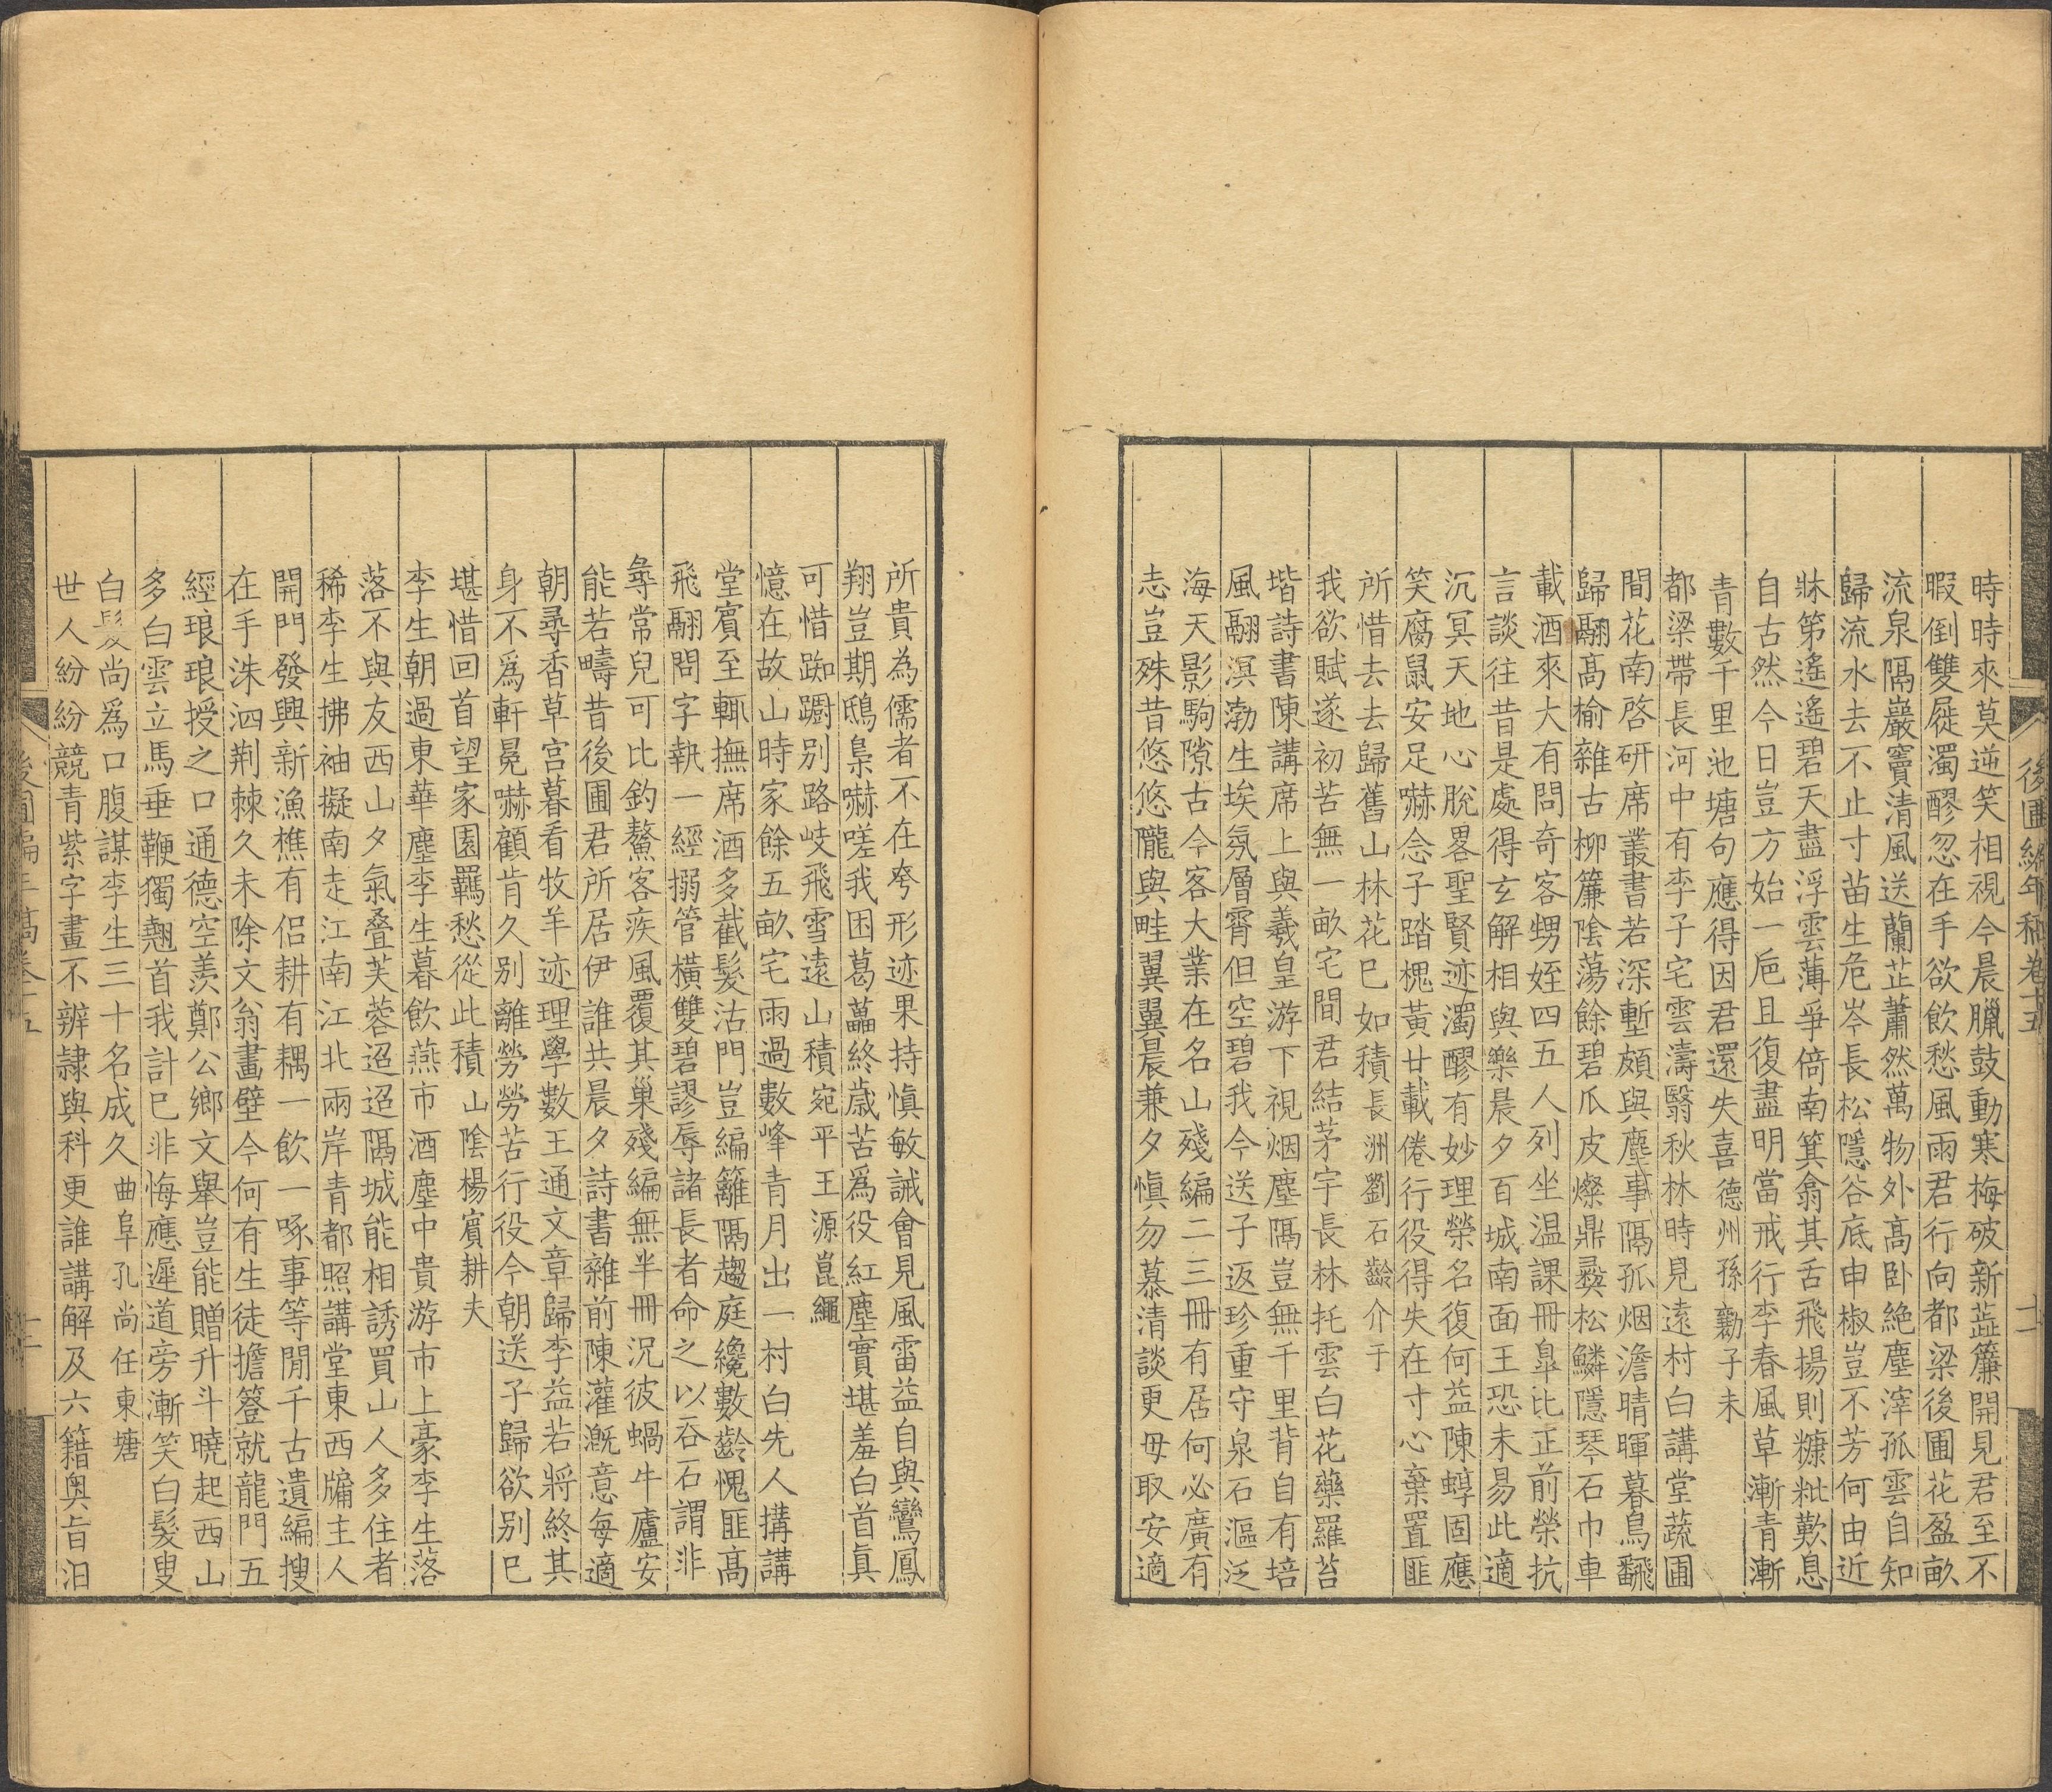 後圃編年稿卷十五
十二
時時來莫逆笑相視今晨臘鼓動寒梅破新蕋簾開見君至不
暇倒雙屣濁醪忽在手欲飲愁風雨君行向都梁後圃花盈畝
流泉隔巖竇清風送蘭芷蕭然萬物外高卧絶塵滓孤雲自知
歸流水去不止寸苗生危岑長松隱谷底申椒豈不芳何由近
牀第遙遙碧天盡浮雲薄爭倚南箕翕其舌飛揚則糠粃歎息
自古然今日豈方始一卮且復盡明當戒行李春風草漸青漸
青數千里池塘句應得因君還失喜德州孫勷子未
都梁帶長河中有李子宅雲濤翳秋林時見遠村白講堂蔬圃
間花南啓研席叢書若深塹頗與塵事隔孤烟澹晴暉暮鳥飜
歸翮高榆雜古柳簾陰蕩餘碧爪皮燦鼎彞松鱗隱琴石巾車
載酒來大有問奇客甥姪四五人列坐温課冊臯比正前榮抗
言談往昔是處得玄解相與樂晨夕百城南面王恐未易此適
沉冥天地心脫畧聖賢迹濁醪有妙理榮名復何益陳蜳固應
笑腐鼠安足嚇念子踏槐黃廿載倦行役得失在寸心棄置匪
所惜去去歸舊山林花巳如積長洲劉石齡介于
我欲賦遂初苦無一畝宅間君結茅宇長林托雲白花藥羅苔
堦詩書陳講席上與羲皇游下視烟塵隔豈無千里背自有培
風翮溟渤生埃氛層霄但空碧我今送子返珍重守泉石漚泛
海天影駒隙古今客大業在名山殘編二三冊有居何必廣有
志豈殊昔悠悠隴與畦翼翼晨兼夕愼勿慕清談更毋取安適
所貴為儒者不在夸形迹果持愼敏誡會見風雷益自與鸞鳳
翔豈期鴟梟嚇嗟我困葛藟終歲苦爲役紅塵實堪羞白首眞
可惜踟躕別路岐飛雪遠山積宛平王源崑繩
憶在故山時家餘五畝宅雨過數峰青月出一村白先人搆講
堂賓至輒撫席酒多截髮沽門豈編籬隔趨庭纔數齡愧匪高
飛翮問字執一經搦管橫雙碧謬辱諸長者命之以吞石謂非
尋常兒可比釣鰲客疾風覆其巢殘編無半冊況彼蝸牛廬安
能若疇昔後圃君所居伊誰共晨夕詩書雜前陳灌漑意每適
朝尋香草宫暮看牧羊迹理學數王通文章歸李益若將終其
身不爲軒冕嚇顧肯久別離勞勞苦行役今朝送子歸欲别巳
堪惜回首望家園羈愁從此積山陰楊賓耕夫
李生朝過東華塵李生暮飲燕市酒塵中貴游市上豪李生落
落不與友西山夕氣叠芙蓉迢迢隔城能相誘買山人多住者
稀李生拂袖擬南走江南江北兩岸青都照講堂東西牖主人
開門發興新漁樵有侣耕有耦一飲一啄事等閒千古遺編搜
在手洙泗荆棘久未除文翁畫壁今何有生徒擔簦就龍門五
經琅琅授之口通德空羨鄭公鄉文舉豈能贈升斗曉起西山
多白雲立馬垂鞭獨翹首我計巳非悔應遲道旁漸笑白髮叟
白髮尚爲口腹謀李生三十名成久曲阜孔尚任東塘
世人紛紛競青紫字畫不辨隷與科更誰講解及六籍奥㫖汨
後圃編年稿卷十五
十三